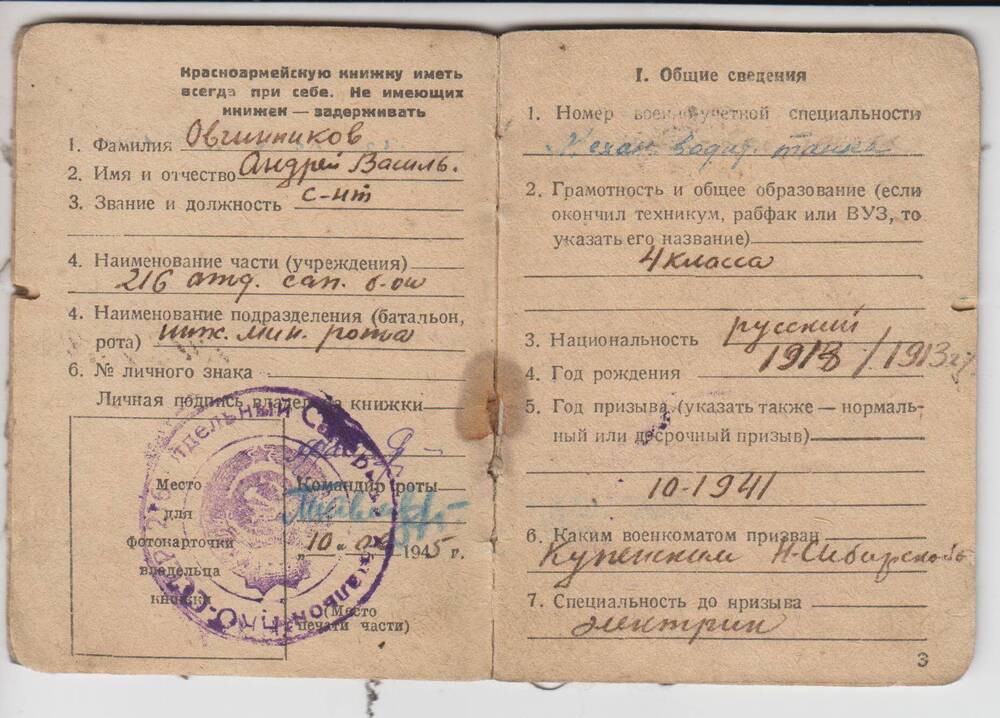 Красноармейскую книжку иметь
всегда при себе. Не имеющих
книжек — задерживать
1. Фамилия Овчинников
2. Имя и отчество Андрей Василь.
3. Звание и должность с-нт
4. Наименование части (учреждения)
216 отд. сап. б-он
4. Наименование подразделения (батальон,
рота) инж. мин. рота
6. № личного знака
Личная подпись владельца книжки
Место
для
фотокарточки
владельца
книжки
Командир роты
„10" 1945 г.
(Место
печати части)
216 Отдельный Саперный Батальон НКО-СССР
I. Общие сведения
1. Номер военно-учетной специальности
Механ. водит. танка
2. Грамотность и общее образование (если
окончил техникум, рабфак или ВУЗ, то
указать его название)
4 класса
3. Национальность русский
4. Год рождения 1918 / 1913
5. Год призыва (указать также — нормаль-
ный или досрочный призыв)
10-1941
6. Каким военкоматом призван
Н-Сибирской
7. Специальность до призыва
электрик
3